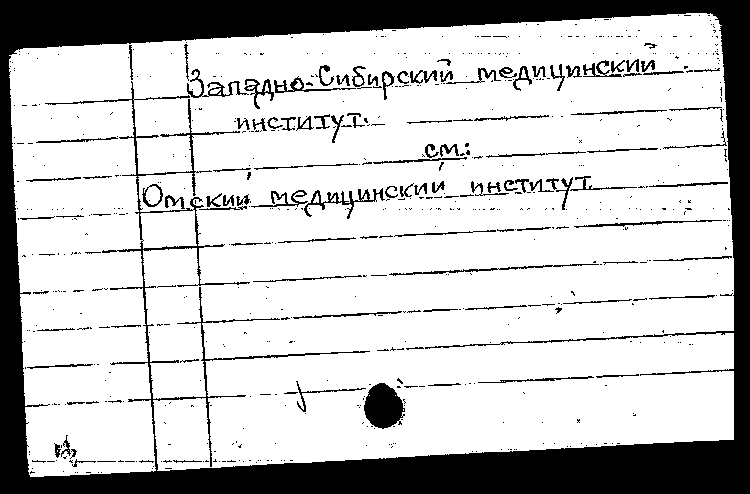 Западно-Сибирский медицинский
институт.
см:
Омский медицинский институт.